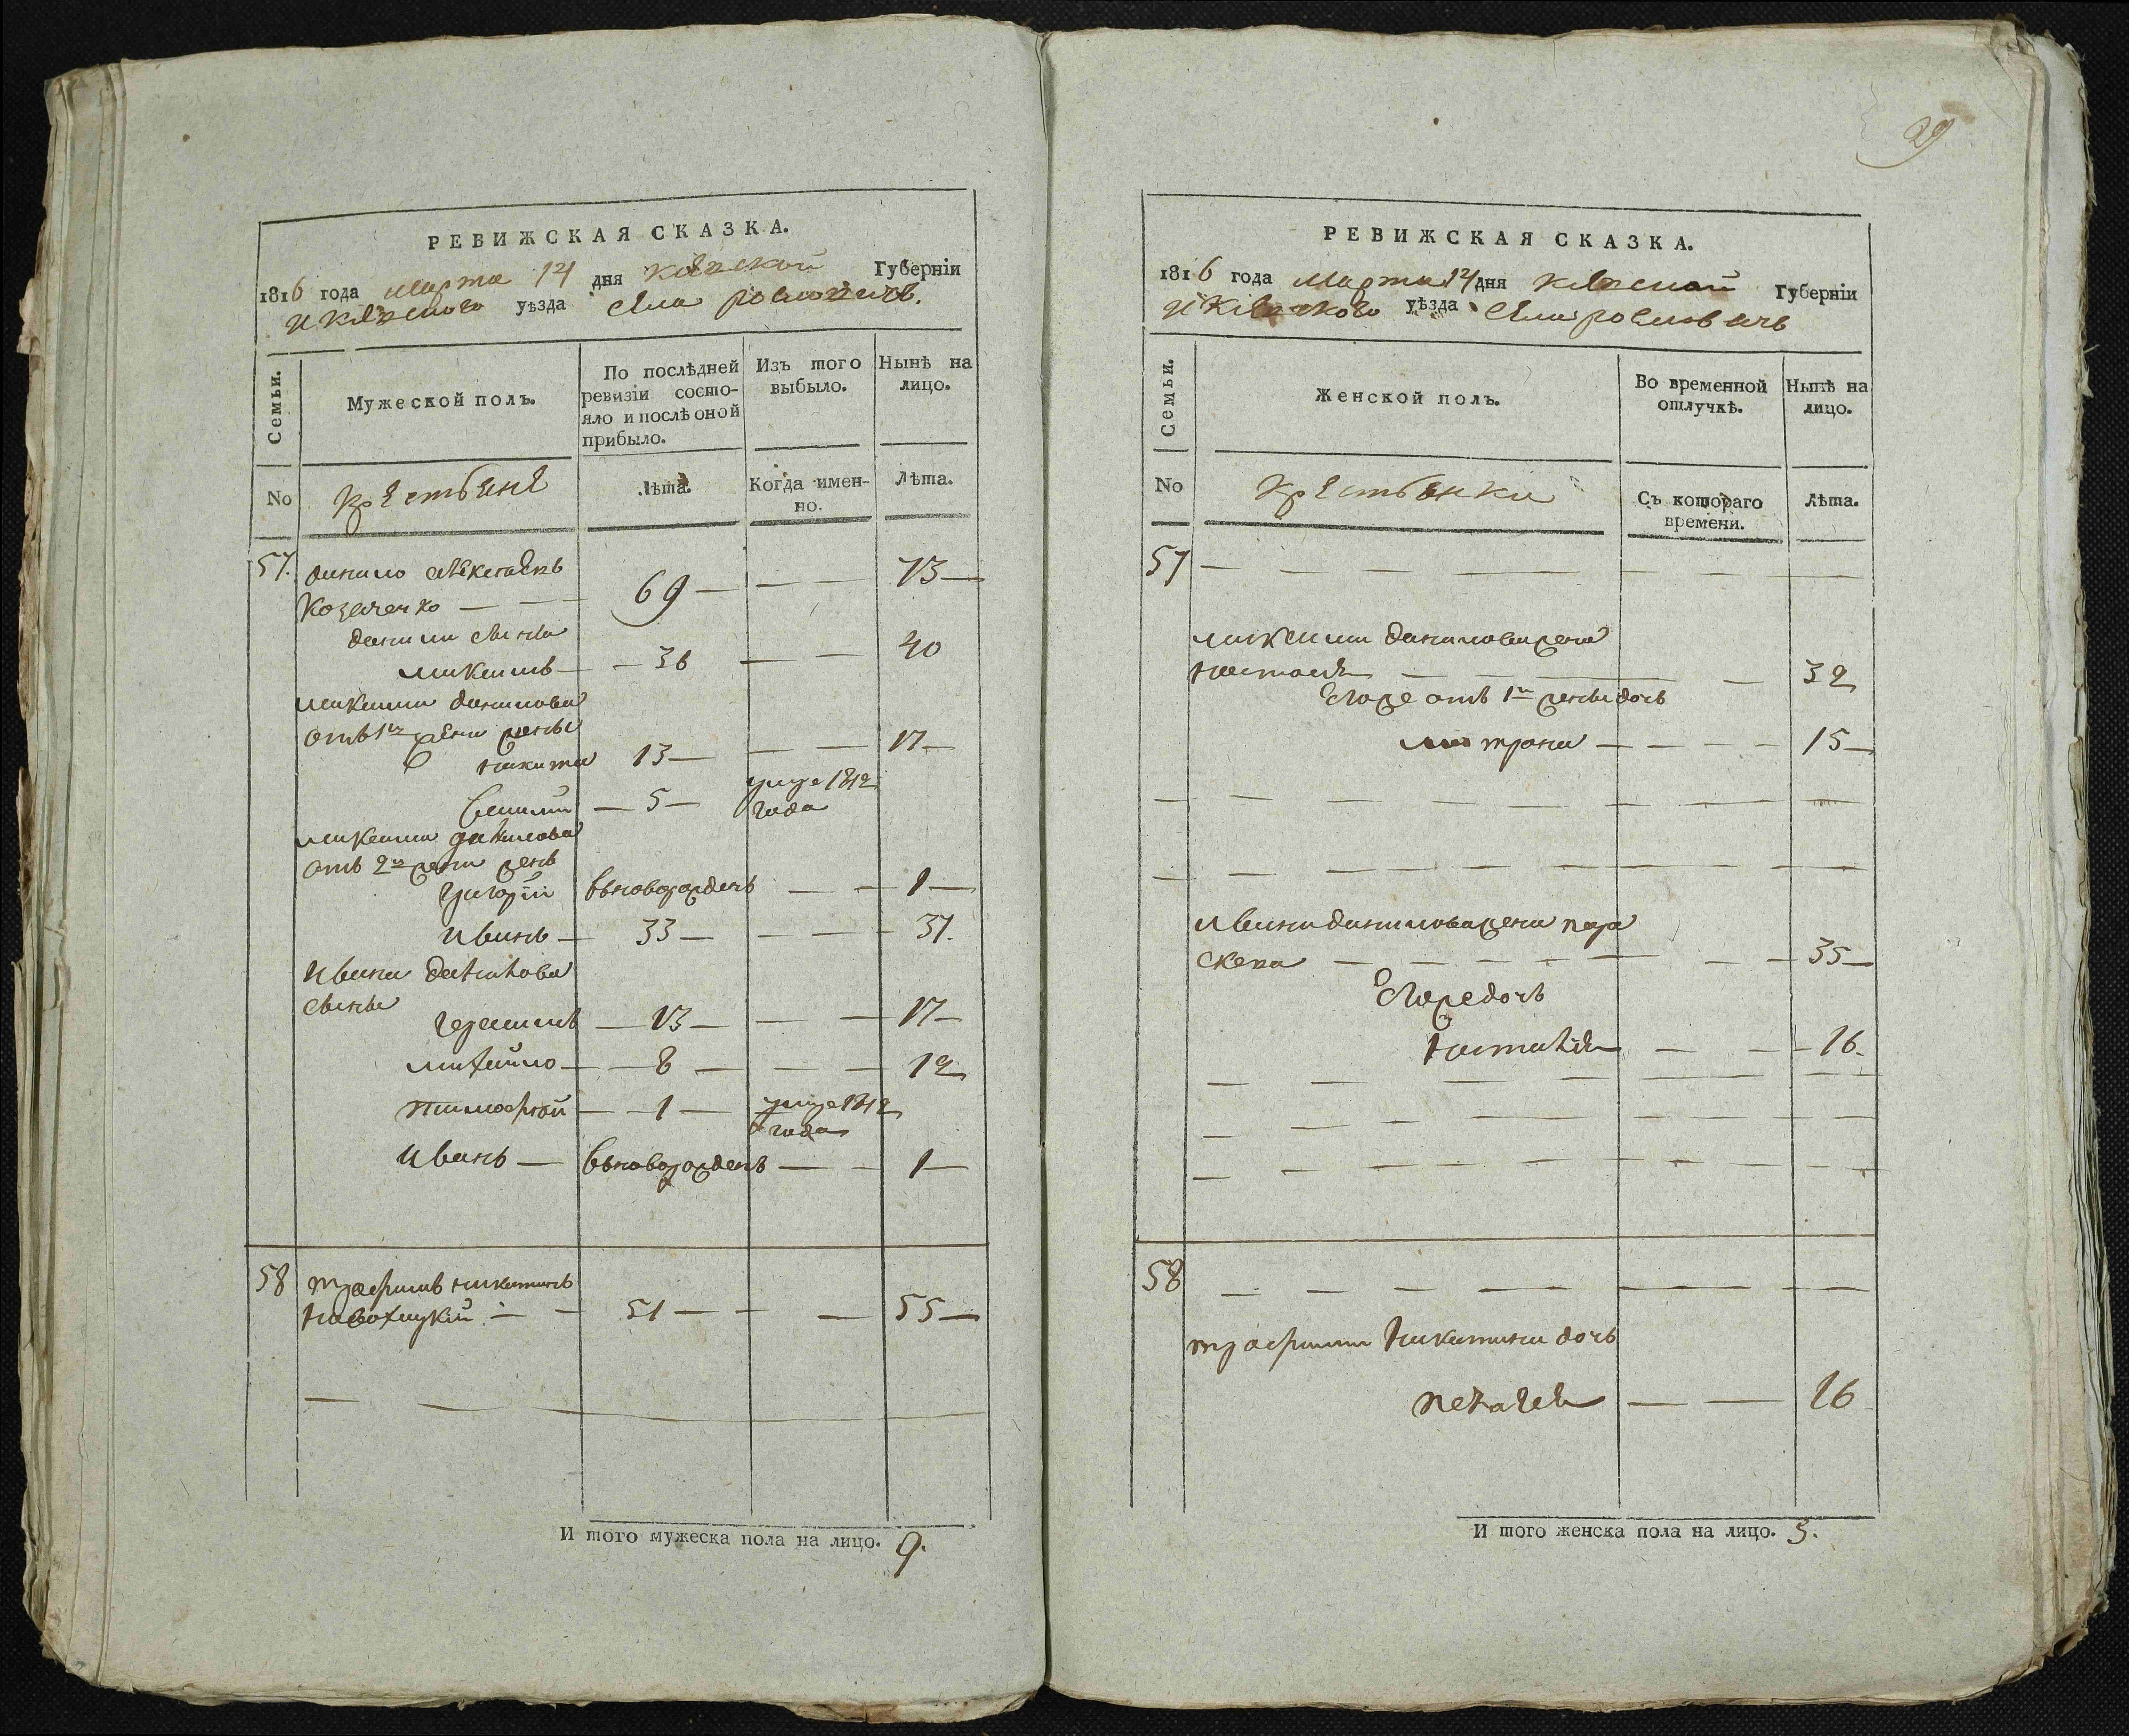 РЕВИЖСКАЯ СКАЗКА.
1816 года Марта 14 дня Кіевской Губерніи
и Кіевского уѣзда села
Семьи.
Мужеской полъ.
По послѣдней ревизіи состояло и послѣ оной прибыло.
Изъ того выбыло.
Нынѣ на лицо.
No
крестьяне
Лѣта.
Когда именно.
Лѣта.
57. Данило Алексѣевъ
Козаченко — — 69 — — — 73 —
Данила сынъ
Максимъ — — 36 — — 40
Максима Данилова
отъ 1й жены
Никита 13 — — — 17 —
— 5 — умре 1812
года
Максима Данилова
отъ 2й жены
Григорій вьноворожденъ — — 1 —
Иванъ — 33 — — — 37.
Ивана Данилова
сыны
Герасимъ — 13 — — — 17 —
Михайло — — 8 — — — 12
Тимофѣй — — 1 — умре 1812
года
Иванъ — вьноворожденъ — — 1 —
58 Трофимъ Никитинъ
— — 51 — — — 55 —
И того мужеска пола на лицо. 9.
29
РЕВИЖСКАЯ СКАЗКА.
1816 года Марта 14 дня Кіевской Губерніи
и Кіевского уѣзда села
Семьи.
Женской полъ.
Во временной отлучкѣ.
Нынѣ на лицо.
No
крестьянки
Съ котораго времени.
Лѣта.
57 — — — — — — — —
Максима Данилова жена
Настасія — — — — 32
Егоже отъ 1й жены дочь
Матрона — — — — 15 —
Ивана Данилова жена Пара
скева — — — — — — — — 35 —
Егоже дочь
Наталія — — — 16.
58 — — — — — — — —
Трофима Никитина дочь
Пелагея — — 16
И того женска пола на лицо. 5.